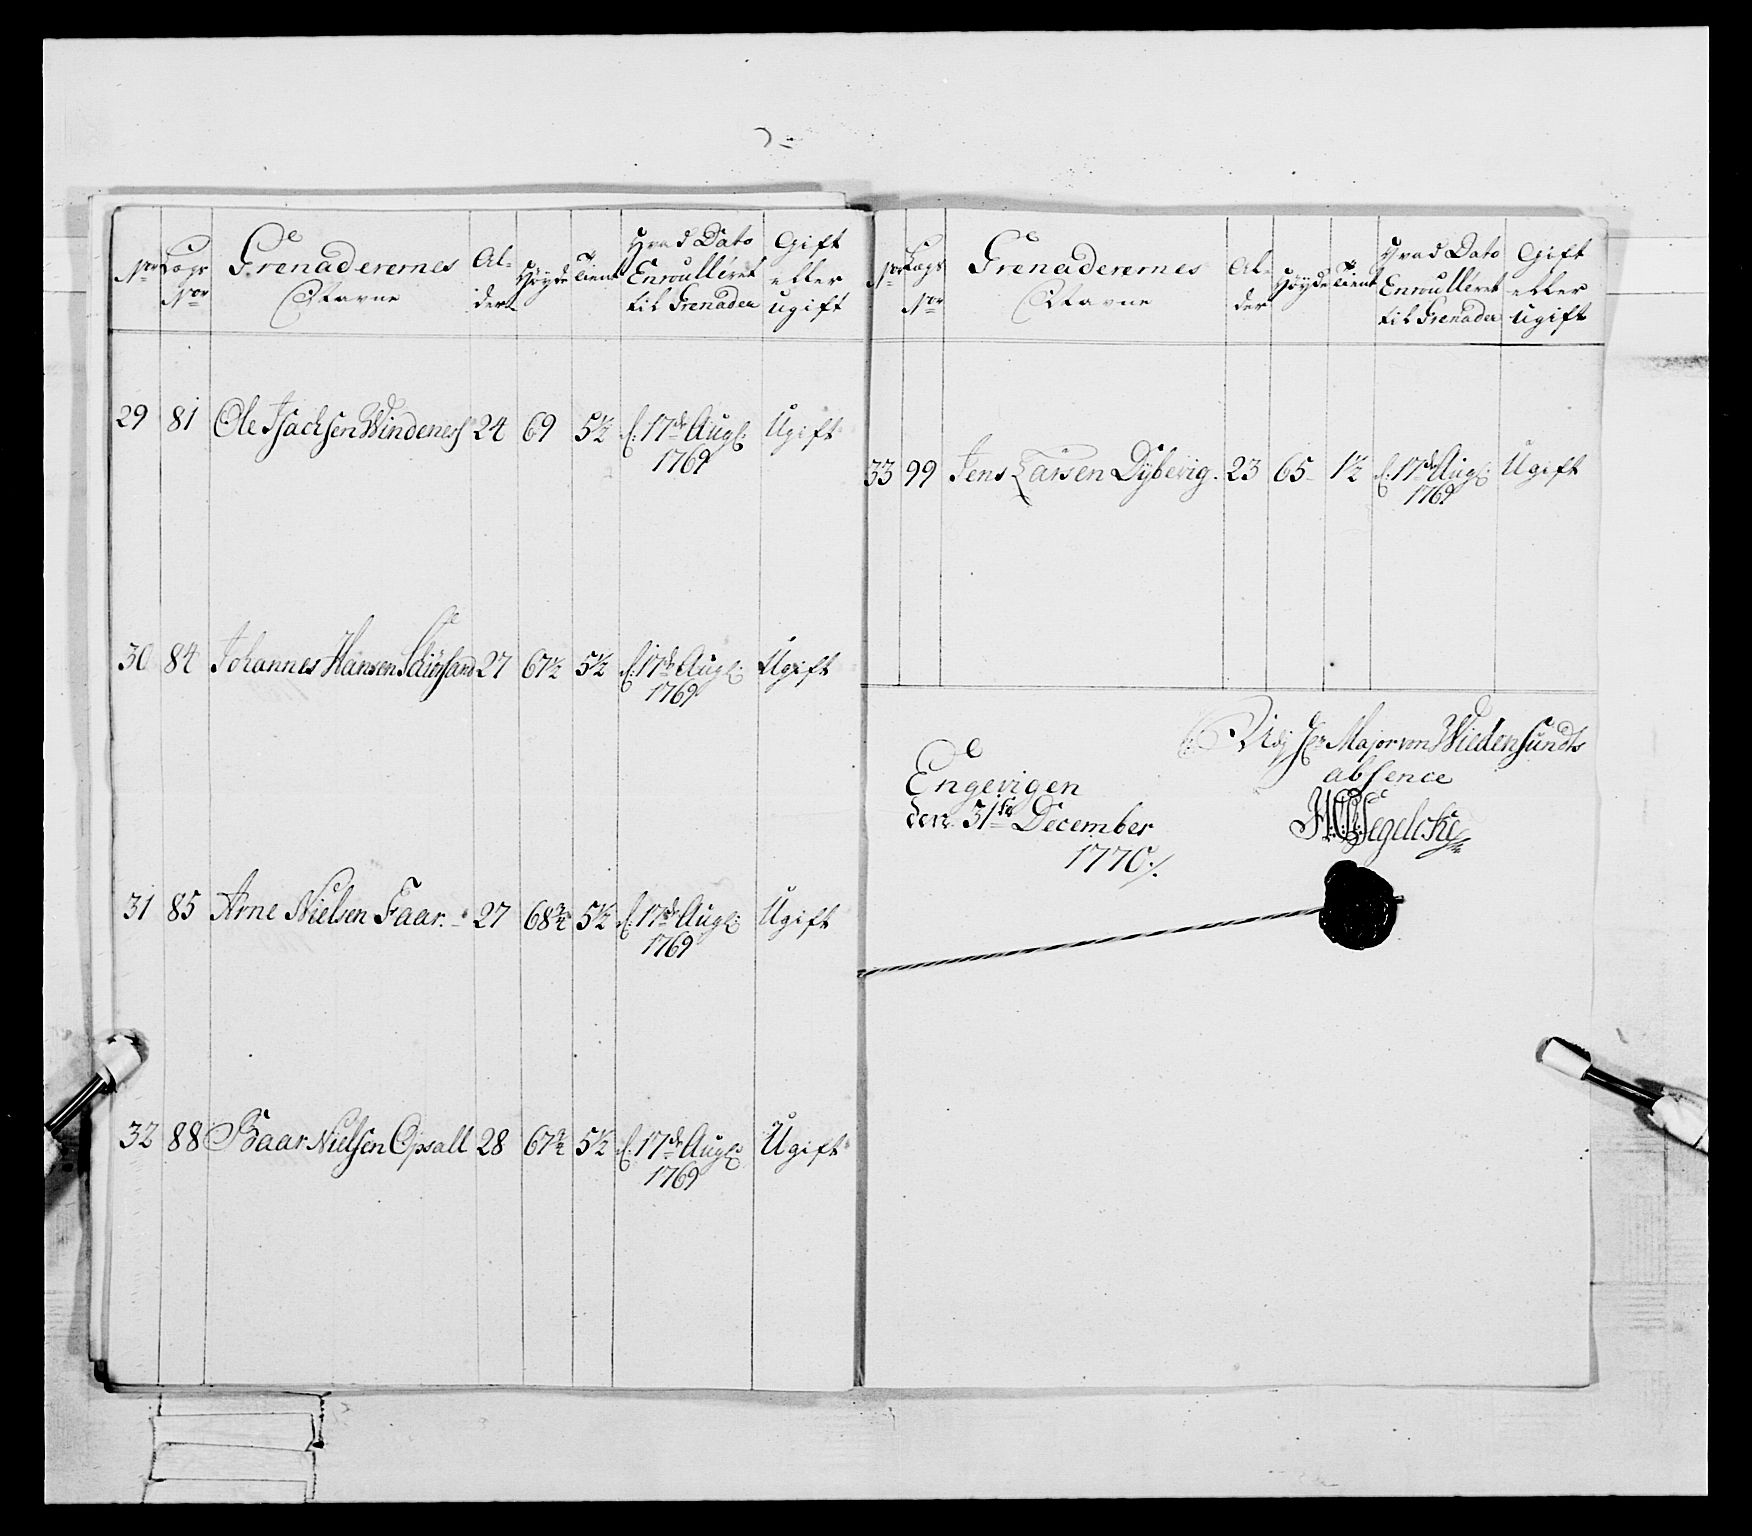 No Lags No Grenaderernes Navne Alder Høyde Tient Hvad Dato Enroulleret til Grenader Gift eller ugift
29 81 Ole Isachsen Windenes 24 69 5½ d. 17de Aug: 1769 Ugift
30 84 Johannes Hansen 27 67½ 5½ d. 17de Aug: 1769 Ugift
31 85 Arne Nielsen Faar. 27 68¾ 5½ d. 17de Aug: 1769 Ugift
32 88 Baar Nielsen Opsall 28 67¾ 5½ d. 17de Aug: 1769 Ugift
No Lags No Grenaderernes Navne Alder Høyde Tient Hvad Dato Enroulleret til Grenader Gift eller ugift
33 99 Jens Larsen Dybevig. 23 65 1½ d. 17de Aug: 1769 Ugift
Major von Wiedensunds
absence
Engevigen
den 31te December
1770
Segelcke